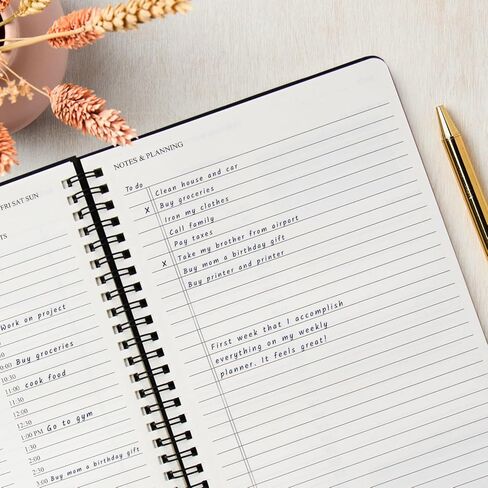 FRI SAT SUN
Work on project
Buy groceries
10:30
11:00 cook food
11:30
12:00
12:30
1:00 PM Go to gym
1:30
2:00
2:30
3:00 Buy mam a birthday gift
NOTES & PLANNING
To do
Clean house and car
x Buy groceries
Iron my clothes
Call family
Pay taxes
x Take my brother from airport
Buy mom a birthday gift
Buy printer and printer
First week that I accomplish
everything on my weekly
planner. It feels great!